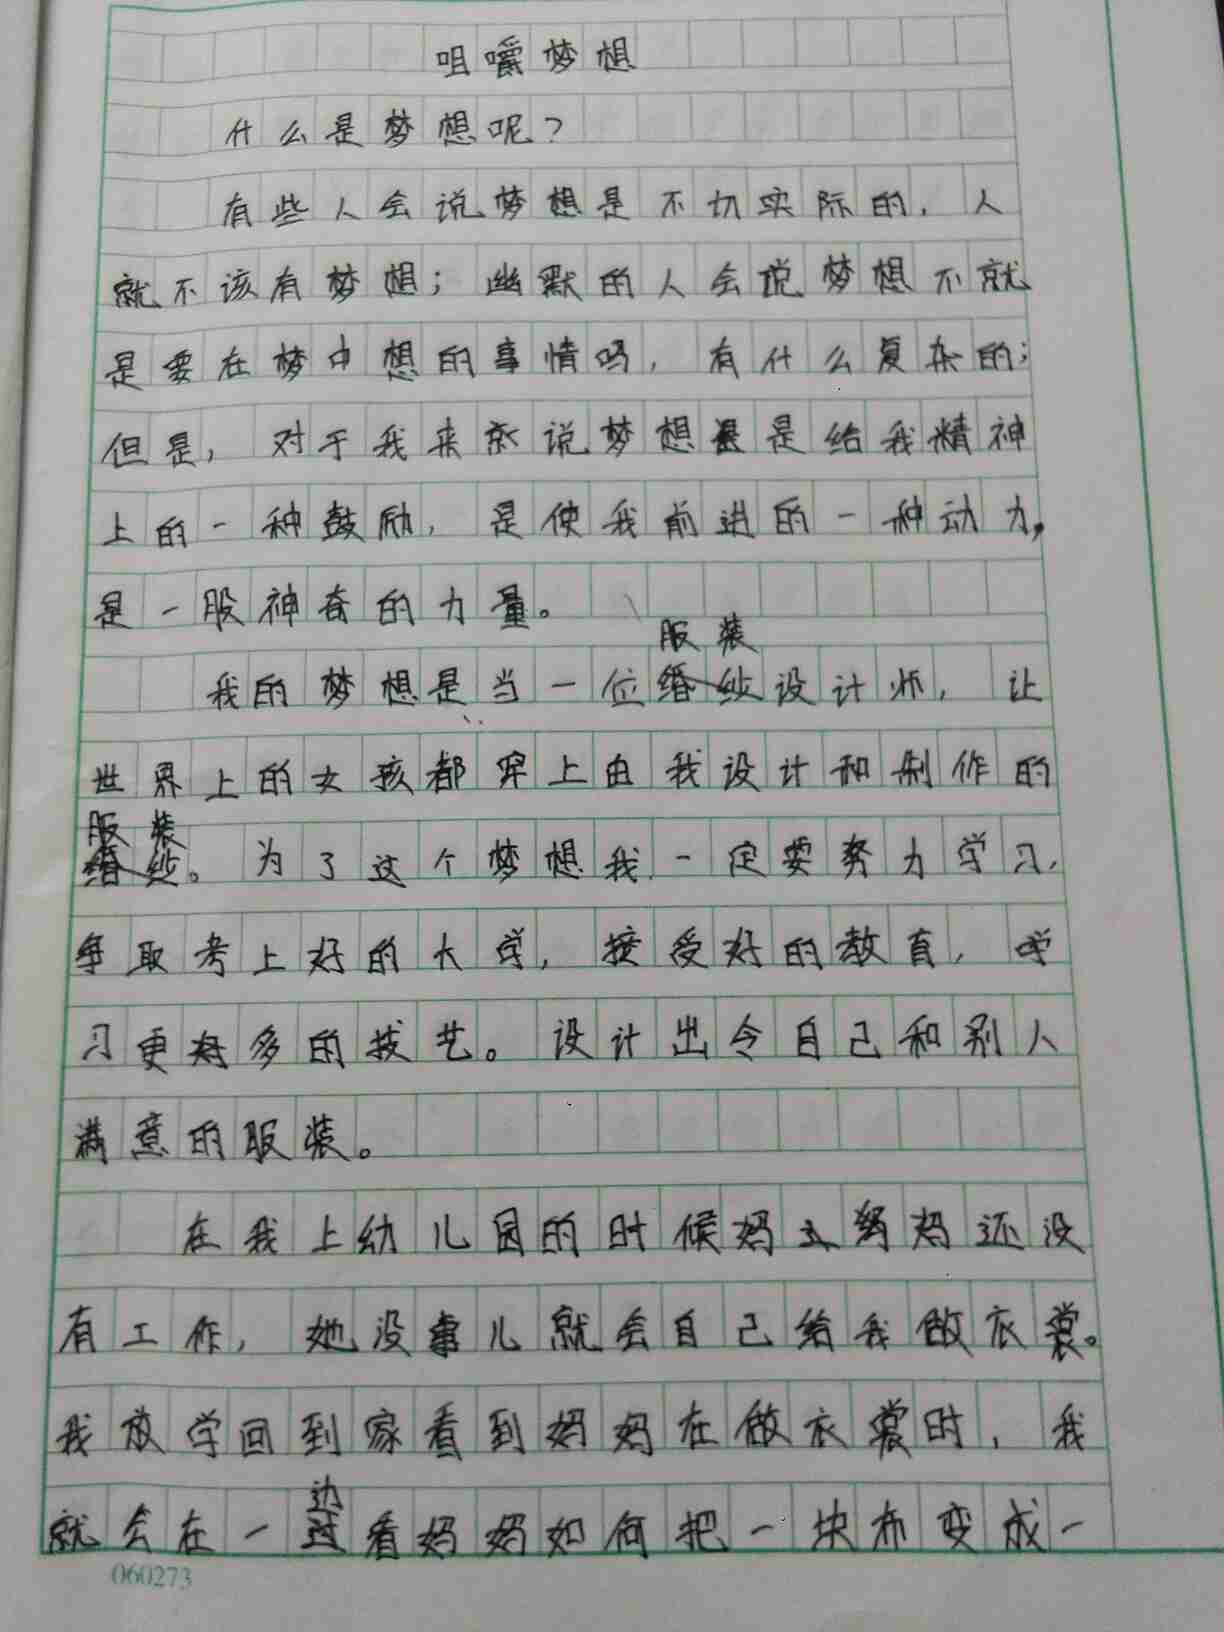 咀嚼梦想
什么是梦想呢？
有些人会说梦想是不切实际的，人
就不该有梦想；幽默的人会说梦想不就
是要在梦中想的事情吗，有什么复杂的；
但是，对于我来说梦想是给我精神
上的一种鼓励，是使我前进的一种动力，
是一股神奇的力量。
我的梦想是当一位服装设计师，让
世界上的女孩都穿上由我设计和制作的
服装。为了这个梦想我一定要努力学习，
争取考上好的大学，接受好的教育，学
习更多的技艺。设计出令自己和别人
满意的服装。
在我上幼儿园的时候妈妈还没
有工作，她没事儿就会自己给我做衣裳。
我放学回到家看到妈妈在做衣裳时，我
就会在一边看妈妈如何把一块布变成一
060273